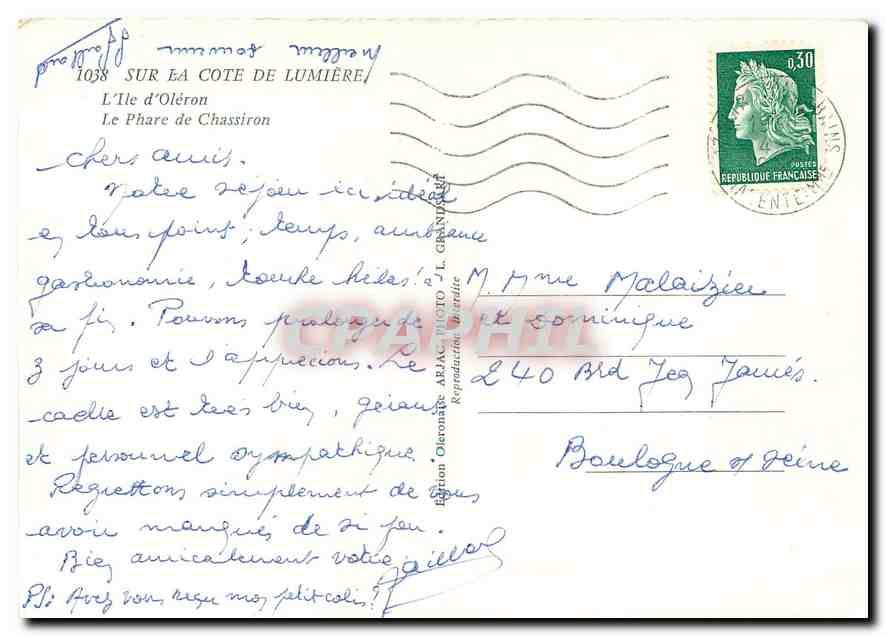 Meilleur souvenir
Gaillard
1038 SUR LA COTE DE LUMIÈRE
L'Ile d'Oléron
Le Phare de Chassiron
Chers amis.
Notre séjour ici, idéal
en tous point; temps, ambiance
gastronomie, touche hélas! à
sa fin. Pouvons prolonger de
3 jours et l'apprécions. Le
cadre est très bien, gérant
et personnel sympathique.
Regrettons simplement de vous
avoir manqués de si peu.
Bien amicalement votre
Gaillard
PS: Avez vous reçu mon petit colis?
Édition Oleronaise ARJAC PHOTO - L. GRANDSIRE
Reproduction Interdite
0,30
POSTES
REPUBLIQUE FRANÇAISE
M. Mme Malaizieu
et Dominique
240 Brd Jeq Jaurés.
Boulogne s/ Seine
CPAPHIL